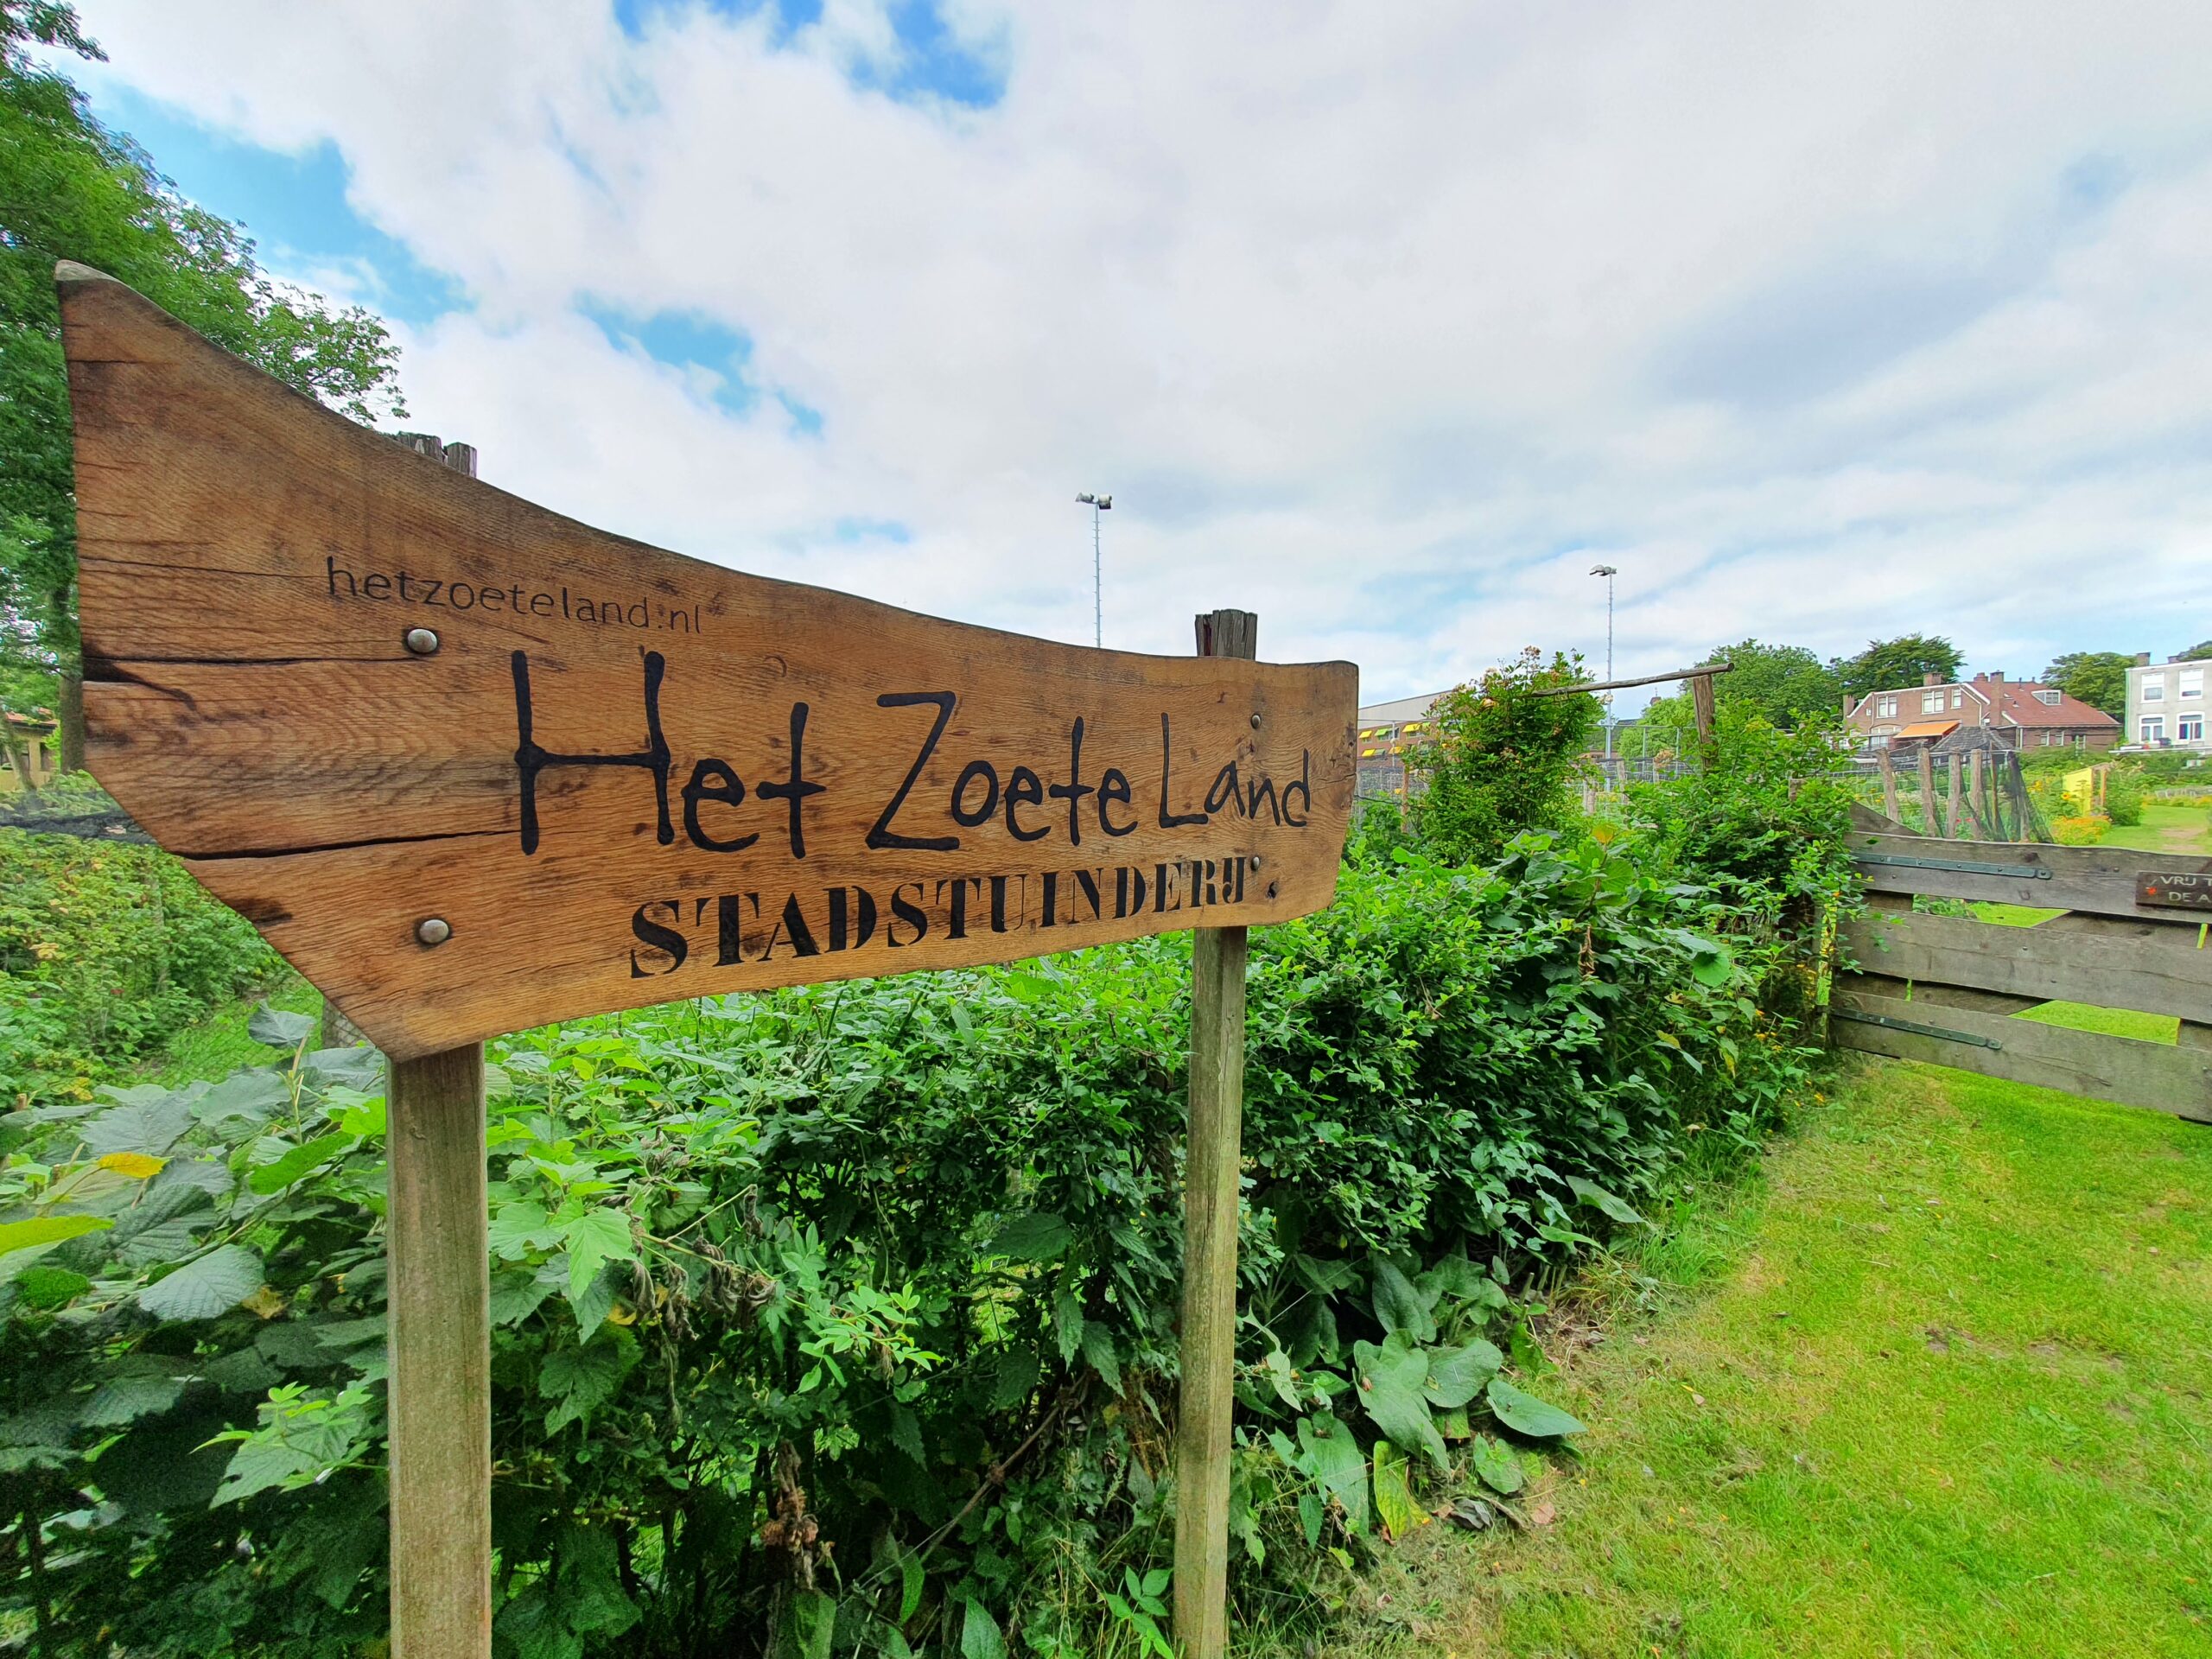 hetzoeteland.nl
Het Zoete Land
STADSTUINDERIJ
VRIJ
DE